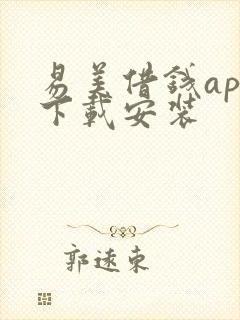 易美借钱ap
下载安装
郭远东